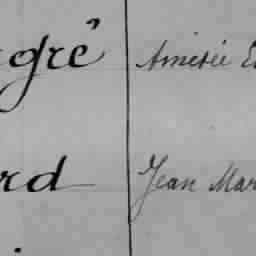 gré Amésée E
rd Jean Mar